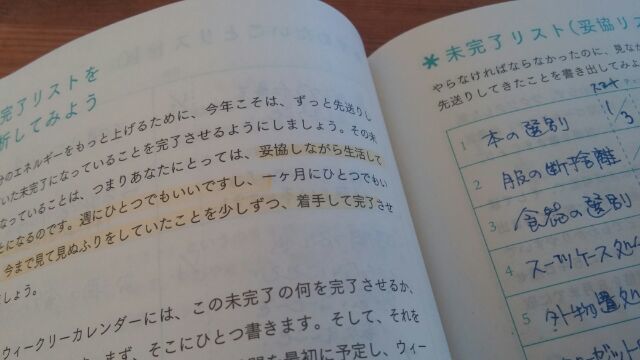 完了リストを
断してみよう
分のエネルギーをもっと上げるために、今年こそは、ずっと先送りし
いた未完了になっていることを完了させるようにしましょう。その未
なっていることは、つまりあなたにとっては、妥協しながら生活して
とになるのです。週にひとつでもいいですし、一ヶ月にひとつでもい
今まで見て見ぬふりをしていたことを少しずつ、着手して完了させ
しょう。
ウィークリーカレンダーには、この未完了の何を完了させるか、
まず、そこにひとつ書きます。そして、それを
を最初に予定し、ウィー
* 未完了リスト(妥協リス
やらなければならなかったのに、見な
先送りしてきたことを書き出してみよ
スタート
1 本の選別 1/3
2 服の断捨離
3 食器の選別
4 スーツケース処
5 外物置処